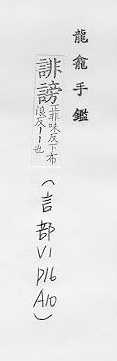 龍龕手鑑
誹謗
味反下布
浪反丨丨也
(言部V1
P16
A10)